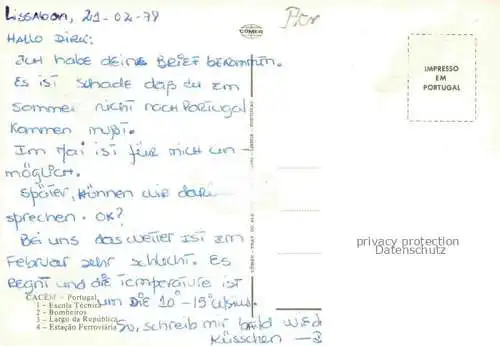 Lissabon, 21-02-78
HALLO DIRK:
ICH habe deine BRIEF bekommen.
Es ist schade daß du im
Sommer nicht nach Portugal
kommen mußt.
Im Mai ist für mich un-
möglich.
Später, können wir
sprechen. OK?
Bei uns das wetter ist im
Februar sehr schlecht. Es
regnt und die temperature ist
um DIE 10°-15°
CACÉM - Portugal
1 - Escola Técnica
2 - Bombeiros
3 - Largo da República
4 - Estação Ferroviária
So, schreib mir bald wied
Küsschen
COMER
IMPRESSO
EM
PORTUGAL
privacy protection
Datenschutz